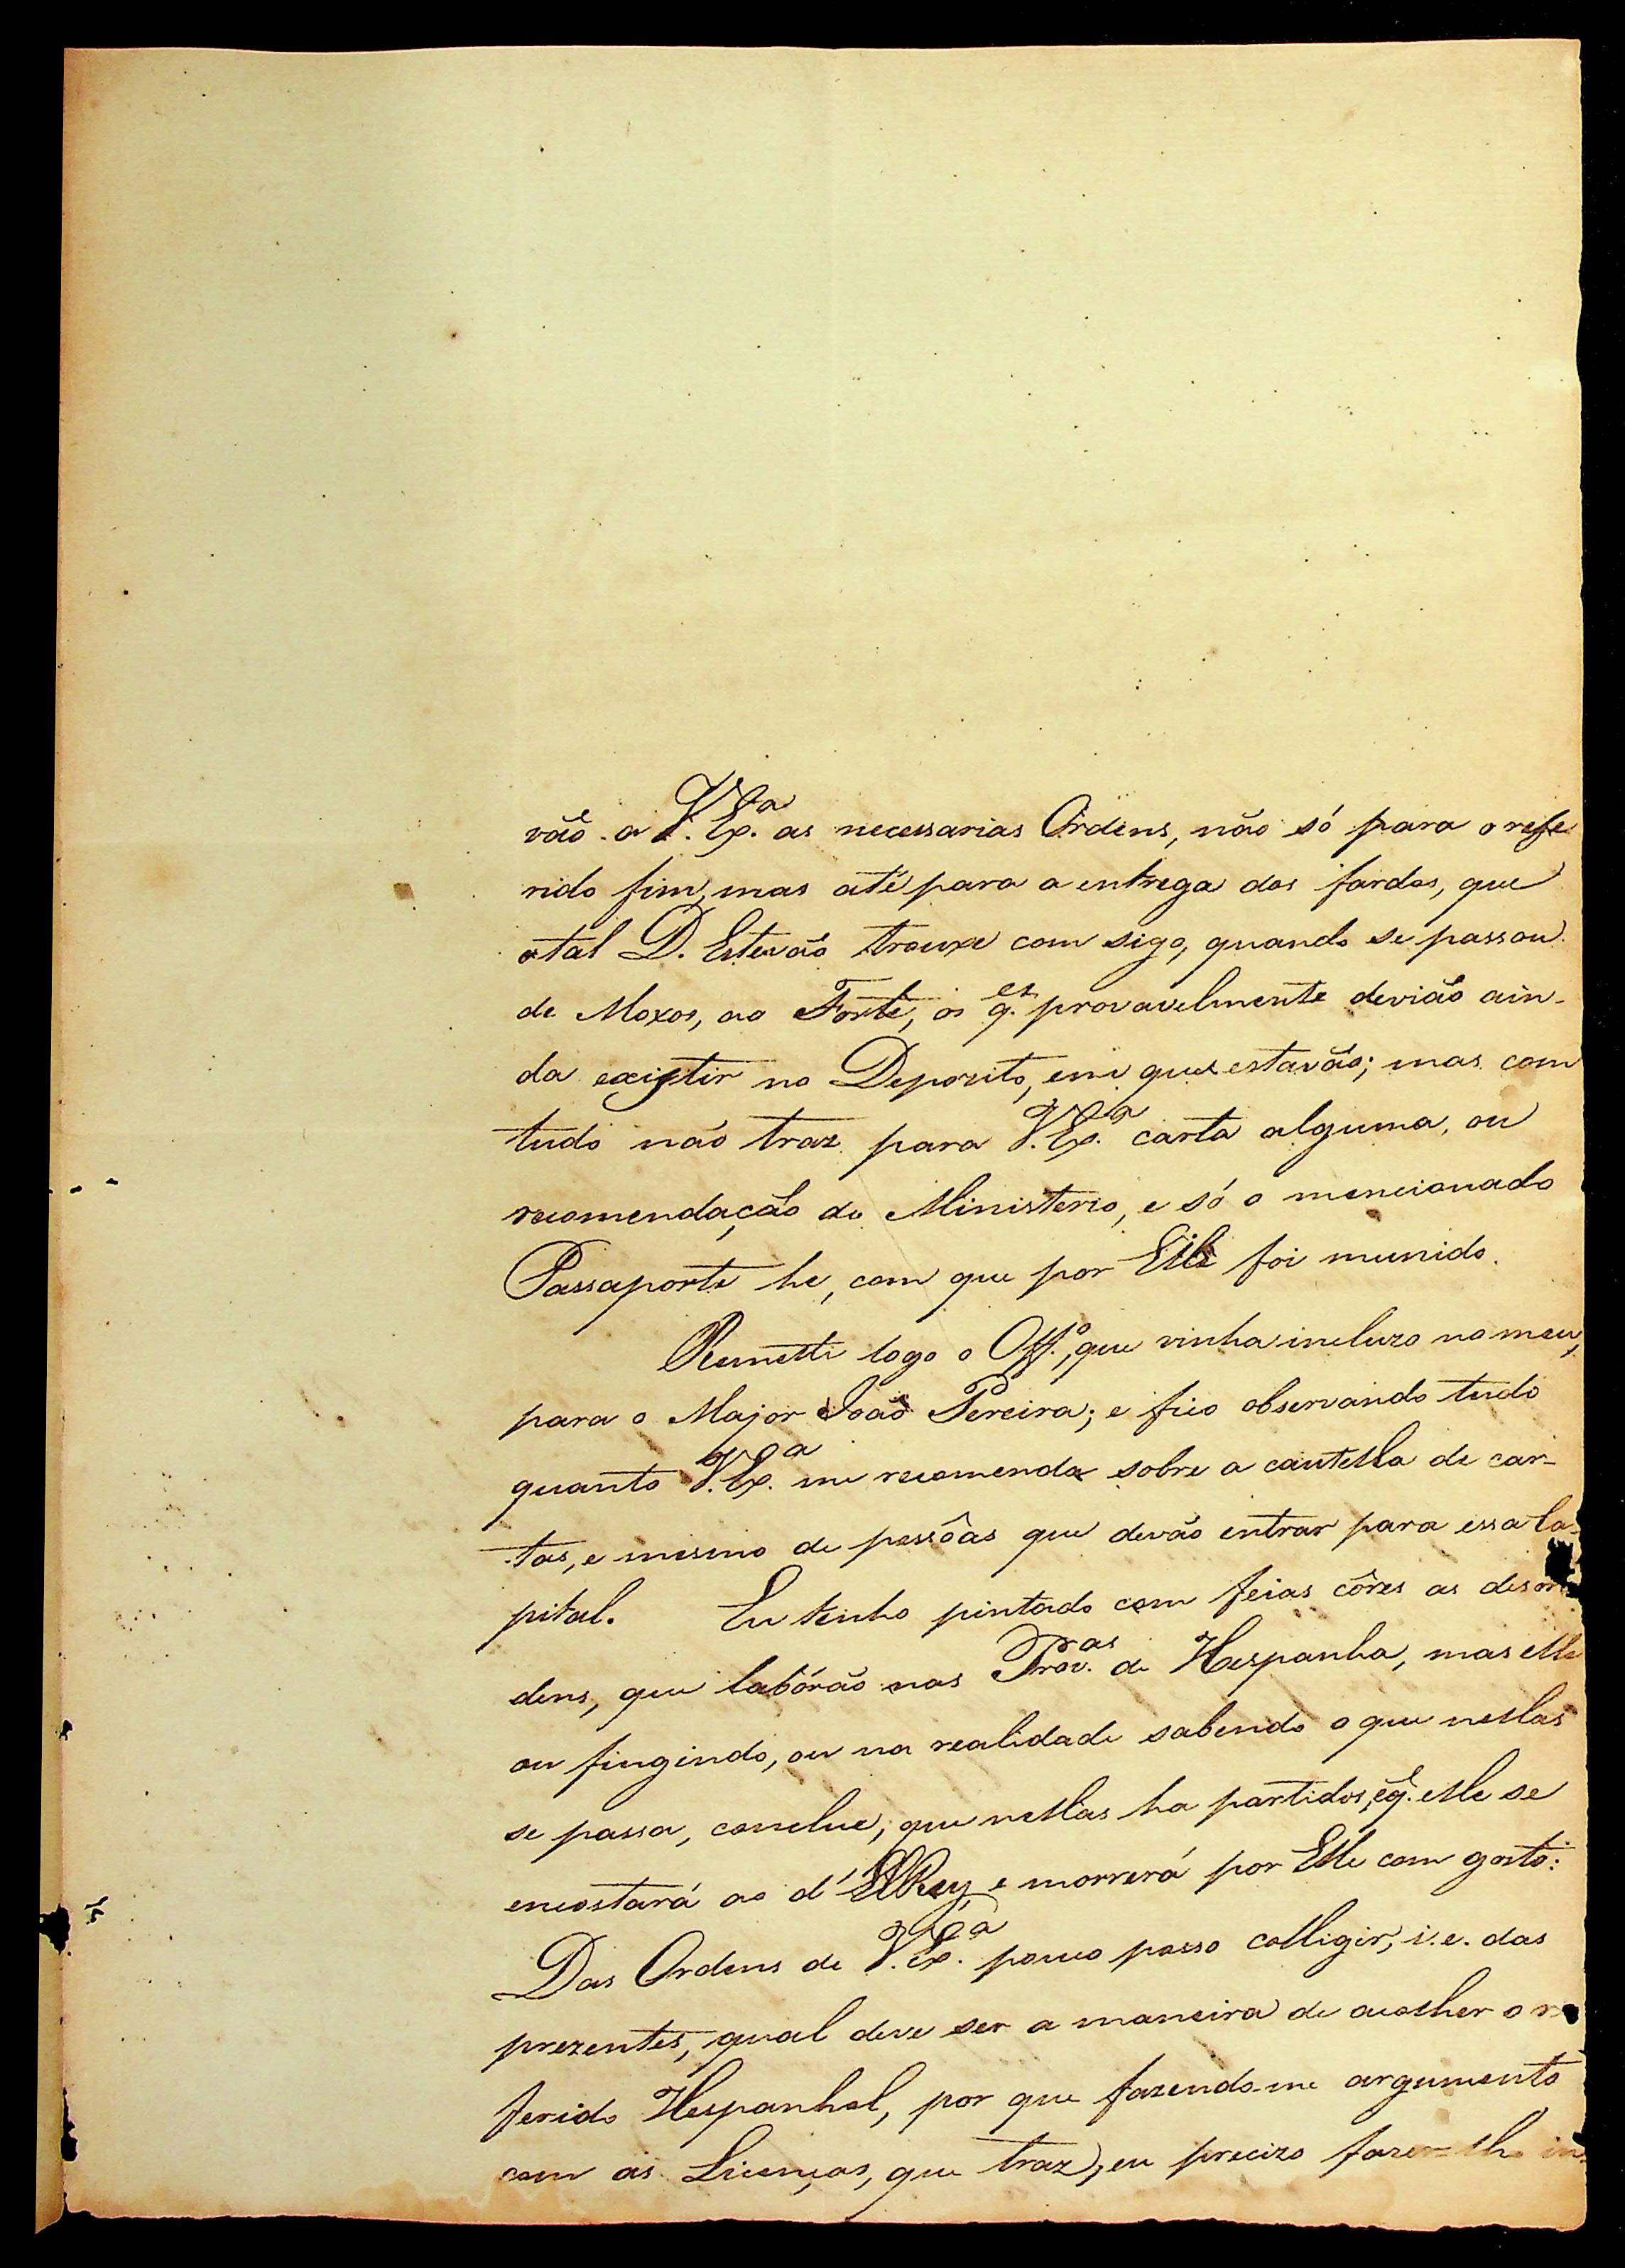 vão a V. Ex.ª as necessarias Ordens, não só para o refe
rido fim, mas até para a entrega dos fardos, que
o tal D. Estevão trouxe com sigo, quando se passou
de Moxos, ao Forte, os q.es provavelmente devião ain-
da existir no Deposito, em que estavão; mas com
tudo não traz para V. Ex.ª carta alguma, ou
recomendação do Ministerio, e só o mencionado
Passaporte he, com que por Elle foi munido.
Remetti logo o Off.º, que vinha incluzo no meu,
para o Major João Pereira; e fico observando tudo
quanto V. Ex.ª me recomenda sobre a cautella de car-
tas, e mesmo de pessôas que devão entrar para essa Ca-
pital. Eu tenho pintado com feias côres as desor
dens, que labórão nas Prov.as de Hespanha, mas elle
ou fingindo, ou na realidade sabendo o que nellas
se passa, conclue, que nellas ha partidos, e q. elle se
encostará ao d'ElRey, e morrerá por Elle com gosto:
Das Ordens de V. Ex.ª pouco posso colligir, i.e. das
prezentes, qual deve ser a maneira de acolher o re
ferido Hespanhol, por que fazendo-me argumento
com as Licenças, que traz, eu precizo fazer-lh in